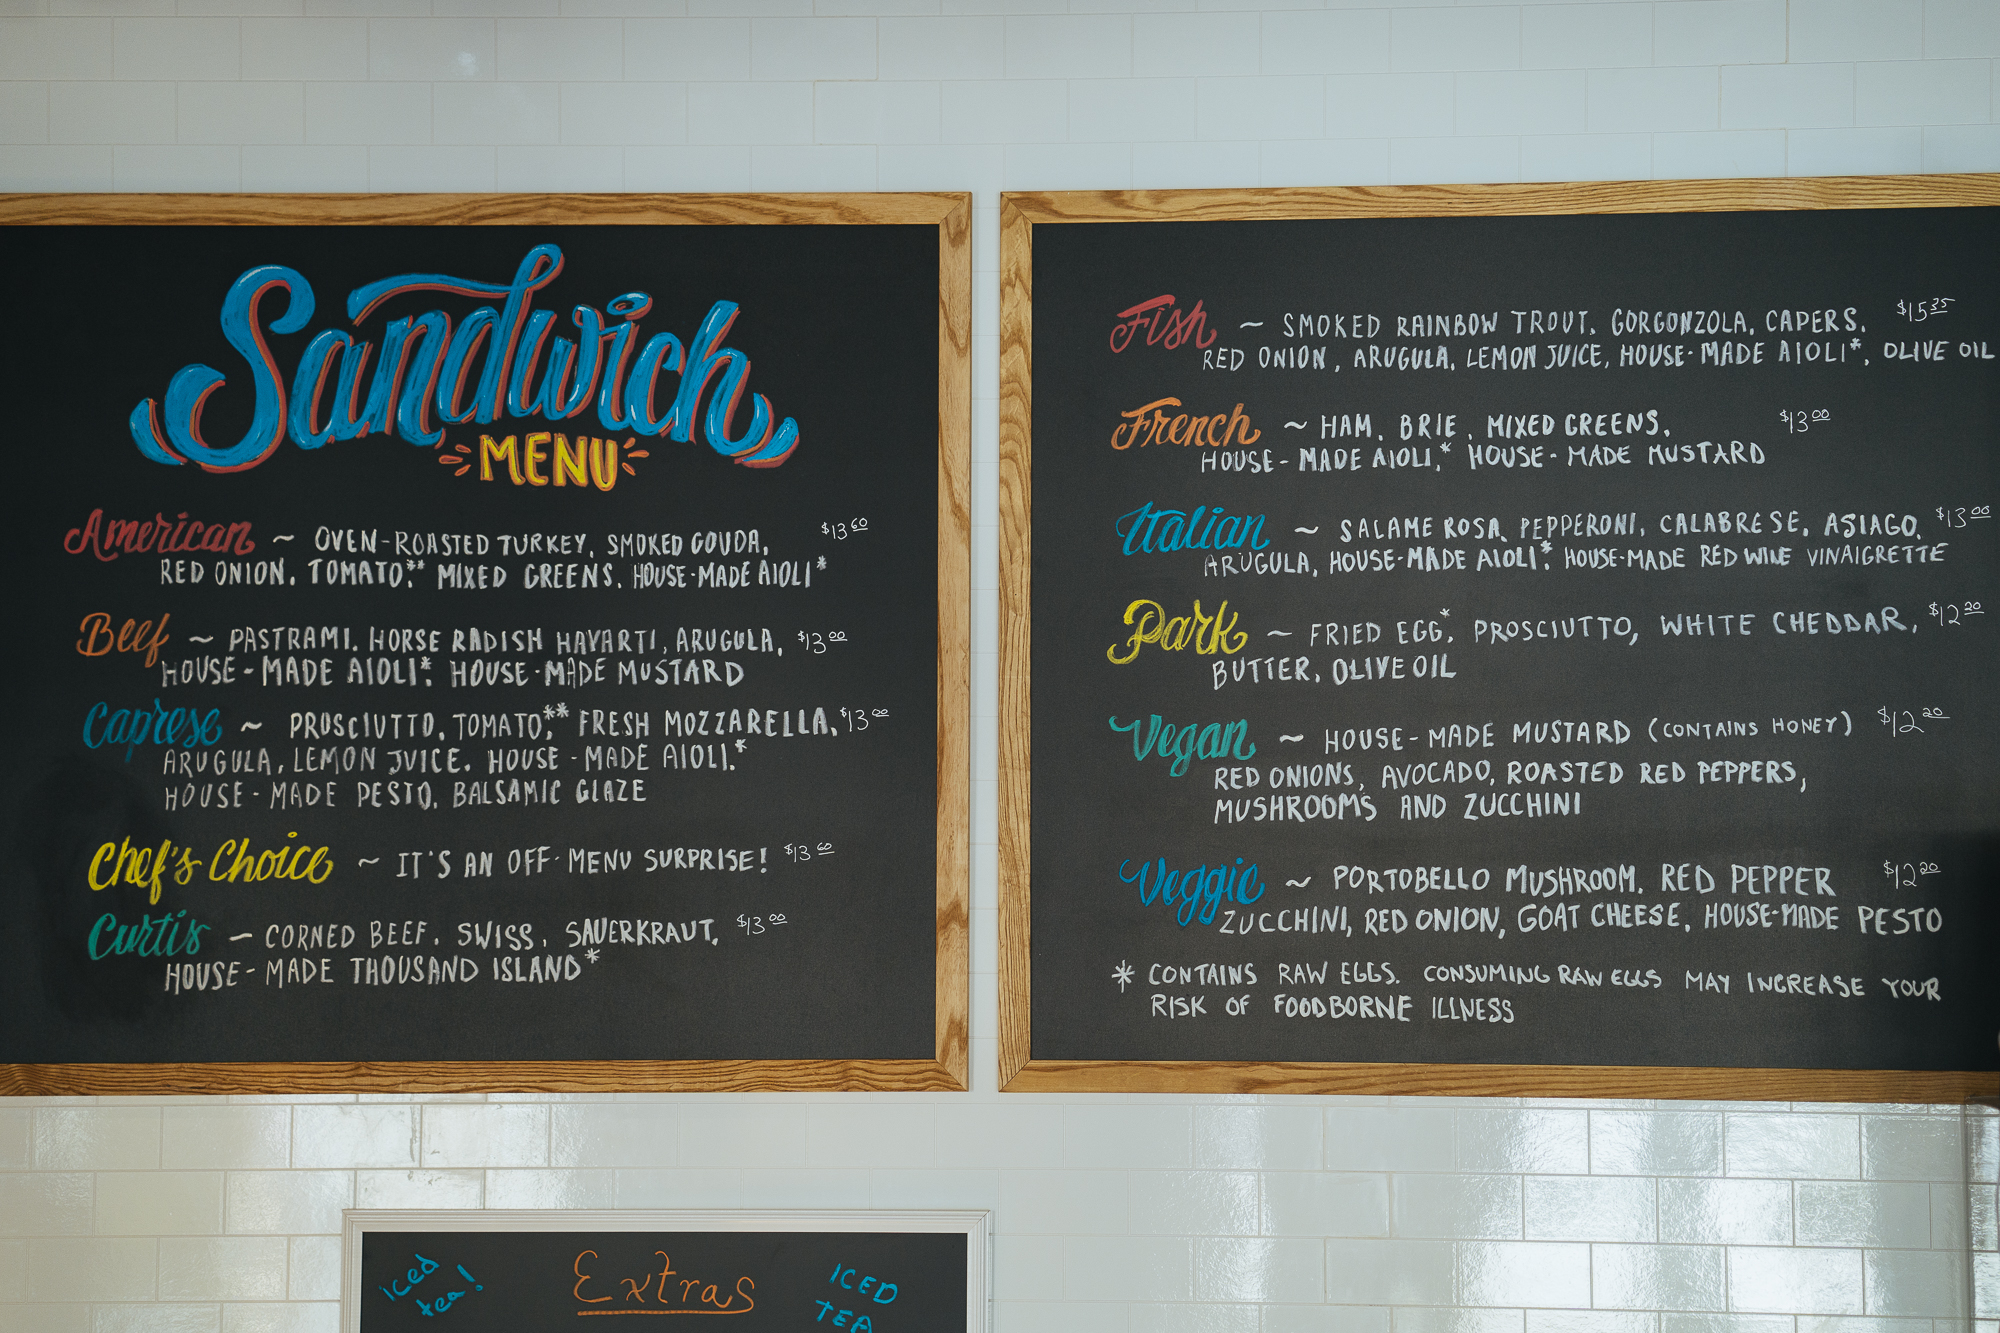 Sandwich
MENU
American ~ OVEN-ROASTED TURKEY, SMOKED GOUDA, $13 60
RED ONION, TOMATO,** MIXED GREENS, HOUSE-MADE AIOLI*
Beef ~ PASTRAMI, HORSE RADISH HAVARTI, ARUGULA, $13 00
HOUSE-MADE AIOLI*, HOUSE-MADE MUSTARD
Caprese ~ PROSCIUTTO, TOMATO,** FRESH MOZZARELLA, $13 00
ARUGULA, LEMON JUICE, HOUSE-MADE AIOLI,*
HOUSE-MADE PESTO, BALSAMIC GLAZE
Chef's Choice ~ IT'S AN OFF-MENU SURPRISE! $13 60
Curtis ~ CORNED BEEF, SWISS, SAUERKRAUT, $13 00
HOUSE-MADE THOUSAND ISLAND*
Fish ~ SMOKED RAINBOW TROUT, GORGONZOLA, CAPERS, $15 35
RED ONION, ARUGULA, LEMON JUICE, HOUSE-MADE AIOLI*, OLIVE OIL
French ~ HAM, BRIE, MIXED GREENS, $13 00
HOUSE-MADE AIOLI,* HOUSE-MADE MUSTARD
Italian ~ SALAME ROSA, PEPPERONI, CALABRESE, ASIAGO, $13 00
ARUGULA, HOUSE-MADE AIOLI*, HOUSE-MADE RED WINE VINAIGRETTE
Park ~ FRIED EGG*, PROSCIUTTO, WHITE CHEDDAR, $12 20
BUTTER, OLIVE OIL
Vegan ~ HOUSE-MADE MUSTARD (CONTAINS HONEY) $12 20
RED ONIONS, AVOCADO, ROASTED RED PEPPERS,
MUSHROOMS AND ZUCCHINI
Veggie ~ PORTOBELLO MUSHROOM, RED PEPPER $12 20
ZUCCHINI, RED ONION, GOAT CHEESE, HOUSE-MADE PESTO
* CONTAINS RAW EGGS. CONSUMING RAW EGGS MAY INCREASE YOUR
RISK OF FOODBORNE ILLNESS
iced
tea!
Extras
ICED
TEA